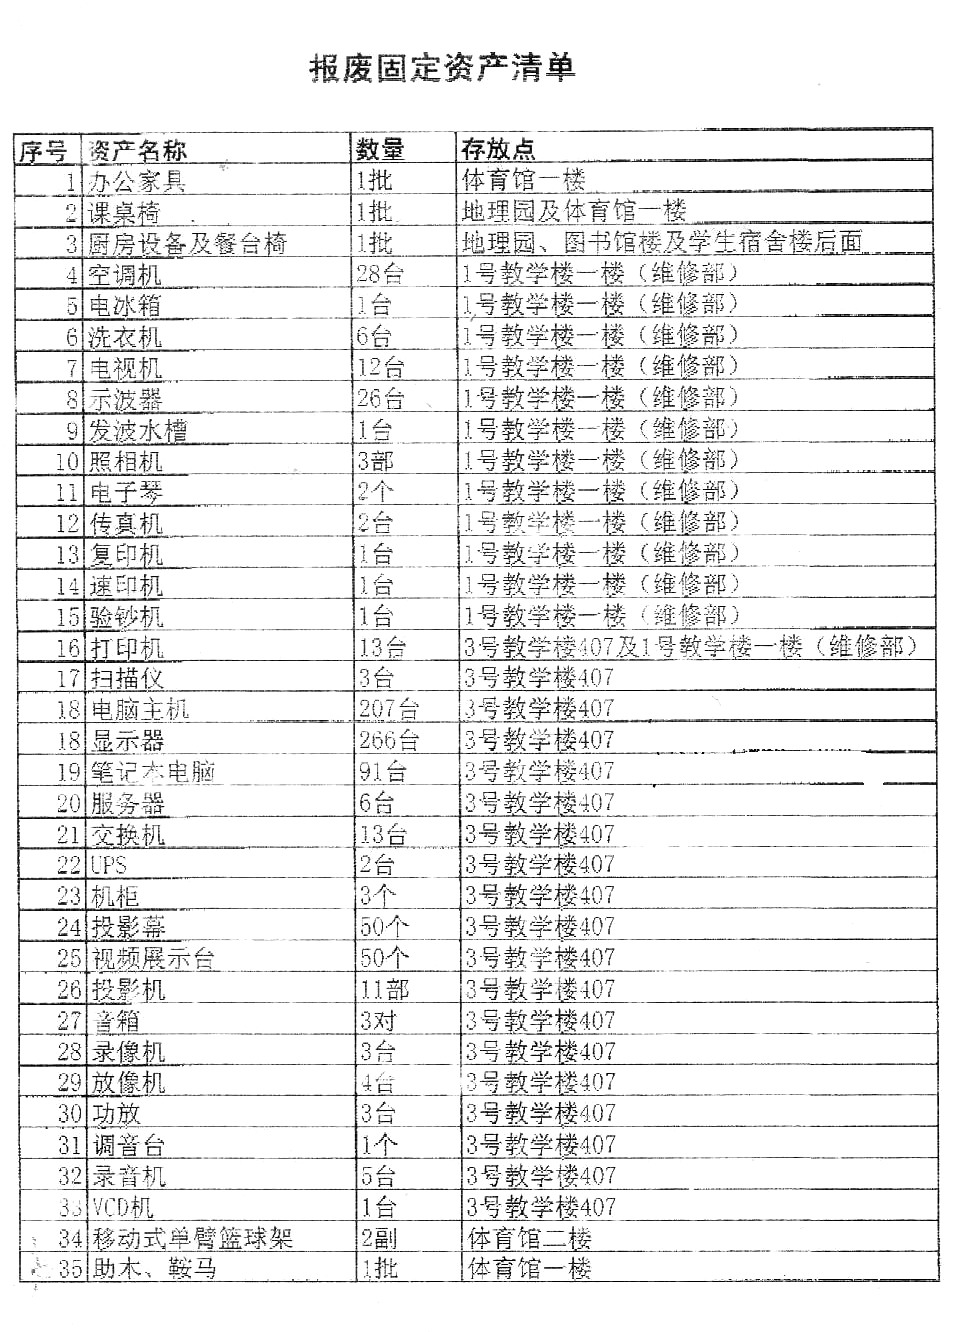 报废固定资产清单
序号 资产名称 数量 存放点
1 办公家具 1批 体育馆一楼
2 课桌椅 1批 地理园及体育馆一楼
3 厨房设备及餐台椅 1批 地理园、图书馆楼及学生宿舍楼后面
4 空调机 28台 1号教学楼一楼（维修部）
5 电冰箱 1台 1号教学楼一楼（维修部）
6 洗衣机 6台 1号教学楼一楼（维修部）
7 电视机 12台 1号教学楼一楼（维修部）
8 示波器 26台 1号教学楼一楼（维修部）
9 发波水槽 1台 1号教学楼一楼（维修部）
10 照相机 3部 1号教学楼一楼（维修部）
11 电子琴 2个 1号教学楼一楼（维修部）
12 传真机 2台 1号教学楼一楼（维修部）
13 复印机 1台 1号教学楼一楼（维修部）
14 速印机 1台 1号教学楼一楼（维修部）
15 验钞机 1台 1号教学楼一楼（维修部）
16 打印机 13台 3号教学楼407及1号教学楼一楼（维修部）
17 扫描仪 3台 3号教学楼407
18 电脑主机 207台 3号教学楼407
18 显示器 266台 3号教学楼407
19 笔记本电脑 91台 3号教学楼407
20 服务器 6台 3号教学楼407
21 交换机 13台 3号教学楼407
22 UPS 2台 3号教学楼407
23 机柜 3个 3号教学楼407
24 投影幕 50个 3号教学楼407
25 视频展示台 50个 3号教学楼407
26 投影机 11部 3号教学楼407
27 音箱 3对 3号教学楼407
28 录像机 3台 3号教学楼407
29 放像机 4台 3号教学楼407
30 功放 3台 3号教学楼407
31 调音台 1个 3号教学楼407
32 录音机 5台 3号教学楼407
33 VCD机 1台 3号教学楼407
34 移动式单臂篮球架 2副 体育馆二楼
35 助木、鞍马 1批 体育馆一楼